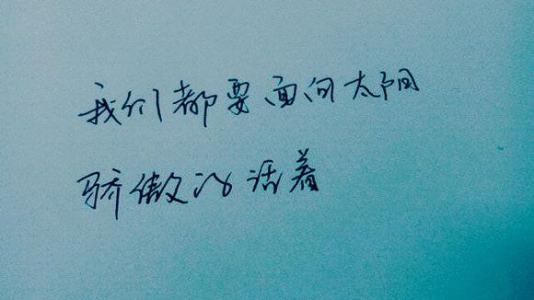 我们都要面向太阳
骄傲的活着